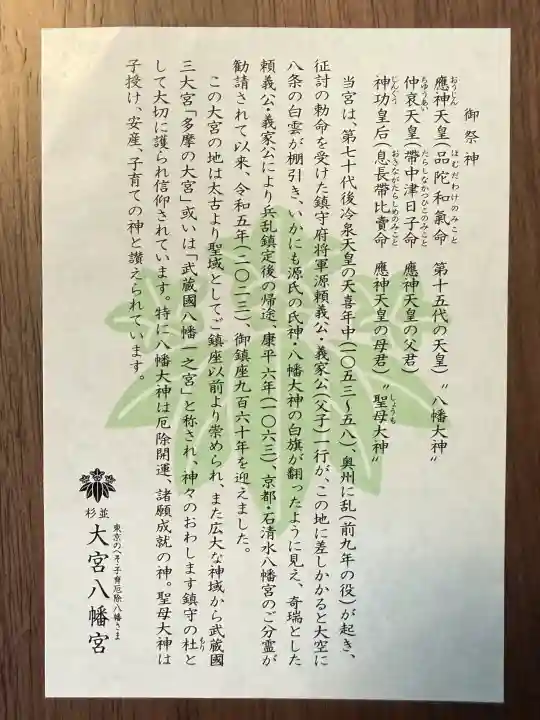 御祭神
應神天皇(品陀和氣命 第十五代の天皇)〝八幡大神〟
おうじん ほむだわけのみこと
仲哀天皇(帶中津日子命 應神天皇の父君)
ちゅうあい たらしなかつひこのみこと
神功皇后(息長帶比賣命 應神天皇の母君)〝聖母大神〟
じんぐう おきながたらしめのみこと しょうも
当宮は、第七十代後冷泉天皇の天喜年中(一〇五三~五八)、奥州に乱(前九年の役)が起き、
征討の勅命を受けた鎮守府将軍源頼義公・義家公(父子)一行が、この地に差しかかると大空に
八条の白雲が棚引き、いかにも源氏の氏神・八幡大神の白旗が翻ったように見え、奇瑞とした
頼義公・義家公により兵乱鎮定後の帰途、康平六年(一〇六三)、京都・石清水八幡宮のご分霊が
勧請されて以来、令和五年(二〇二三)、御鎮座九百六十年を迎えました。
この大宮の地は太古より聖域としてご鎮座以前より崇められ、また広大な神域から武蔵國
三大宮「多摩の大宮」或いは「武蔵國八幡一之宮」と称され、神々のおわします鎮守の杜と
もり
して大切に護られ信仰されています。特に八幡大神は厄除開運、諸願成就の神。聖母大神は
子授け、安産、子育ての神と讃えられています。
東京のへそ・子育厄除八幡さま
杉並
大宮八幡宮